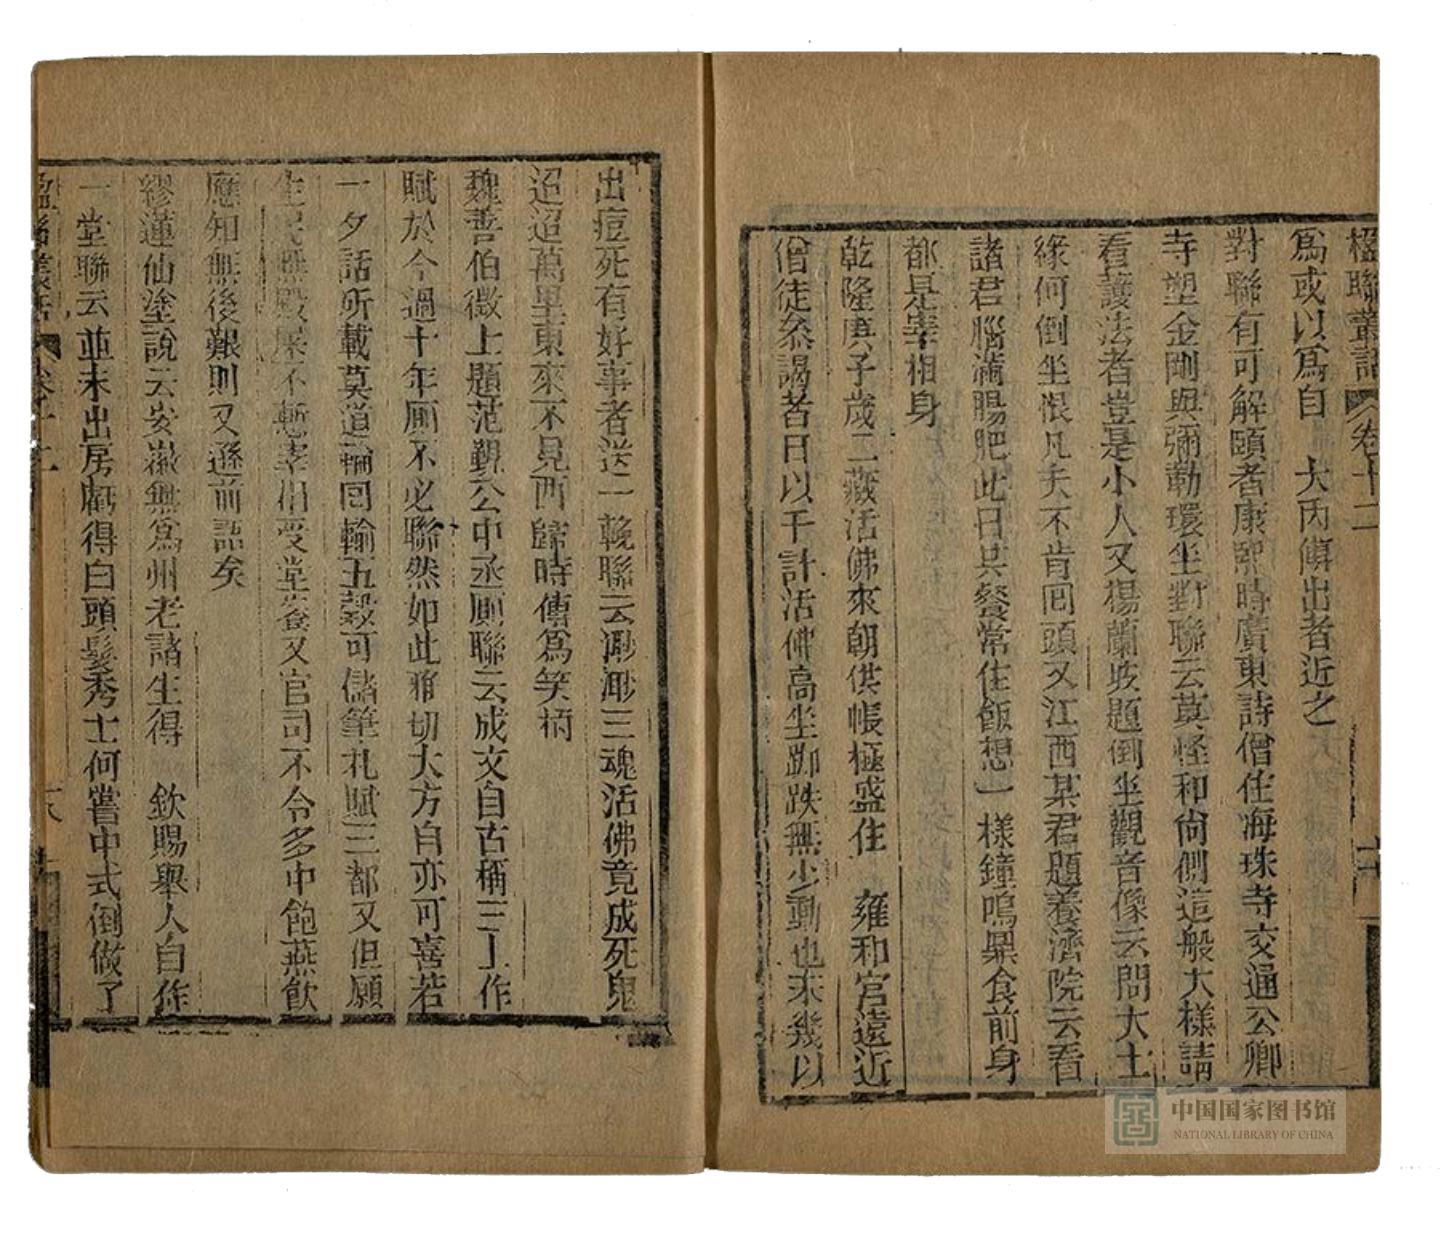 楹聯叢話 卷十二
爲或以爲自 大內傳出者近之
對聯有可解頤者康熙時廣東詩僧住海珠寺交通公卿
寺塑金剛與彌勒環坐對聯云莫怪和尙側這般大樣請
看護法者豈是小人又楊蘭坡題倒坐觀音像云問大士
緣何倒坐恨凡夫不肯囘頭又江西某君題養濟院云看
諸君腦滿腸肥此日共餐常住飯想一樣鐘鳴鼎食前身
都是宰相身
乾隆庚子歲二藏活佛來朝供帳極盛住 雍和宮遠近
僧徒叅謁者日以千計活佛高坐跏趺無少動也未幾以
出痘死有好事者送一輓聯云渺渺三魂活佛竟成死鬼
迢迢萬里東來不見西歸時傳爲笑柄
魏善伯徵上題范覲公中丞厠聯云成文自古稱三上作
賦於今過十年厠不必聯然如此雅切大方自亦可喜若
一夕話所載莫道輪囘輸五穀可儲筆札賦三都又但願
生民無殿屎不慙宰相受堂餐又官司不令多中飽燕飮
應知無後艱則又遜前語矣
繆蓮仙塗說云安徽無爲州老諸生得 欽賜舉人自作
一堂聯云並未出房薦得白頭髮秀士何嘗中式倒做了
楹聯叢話 卷十二